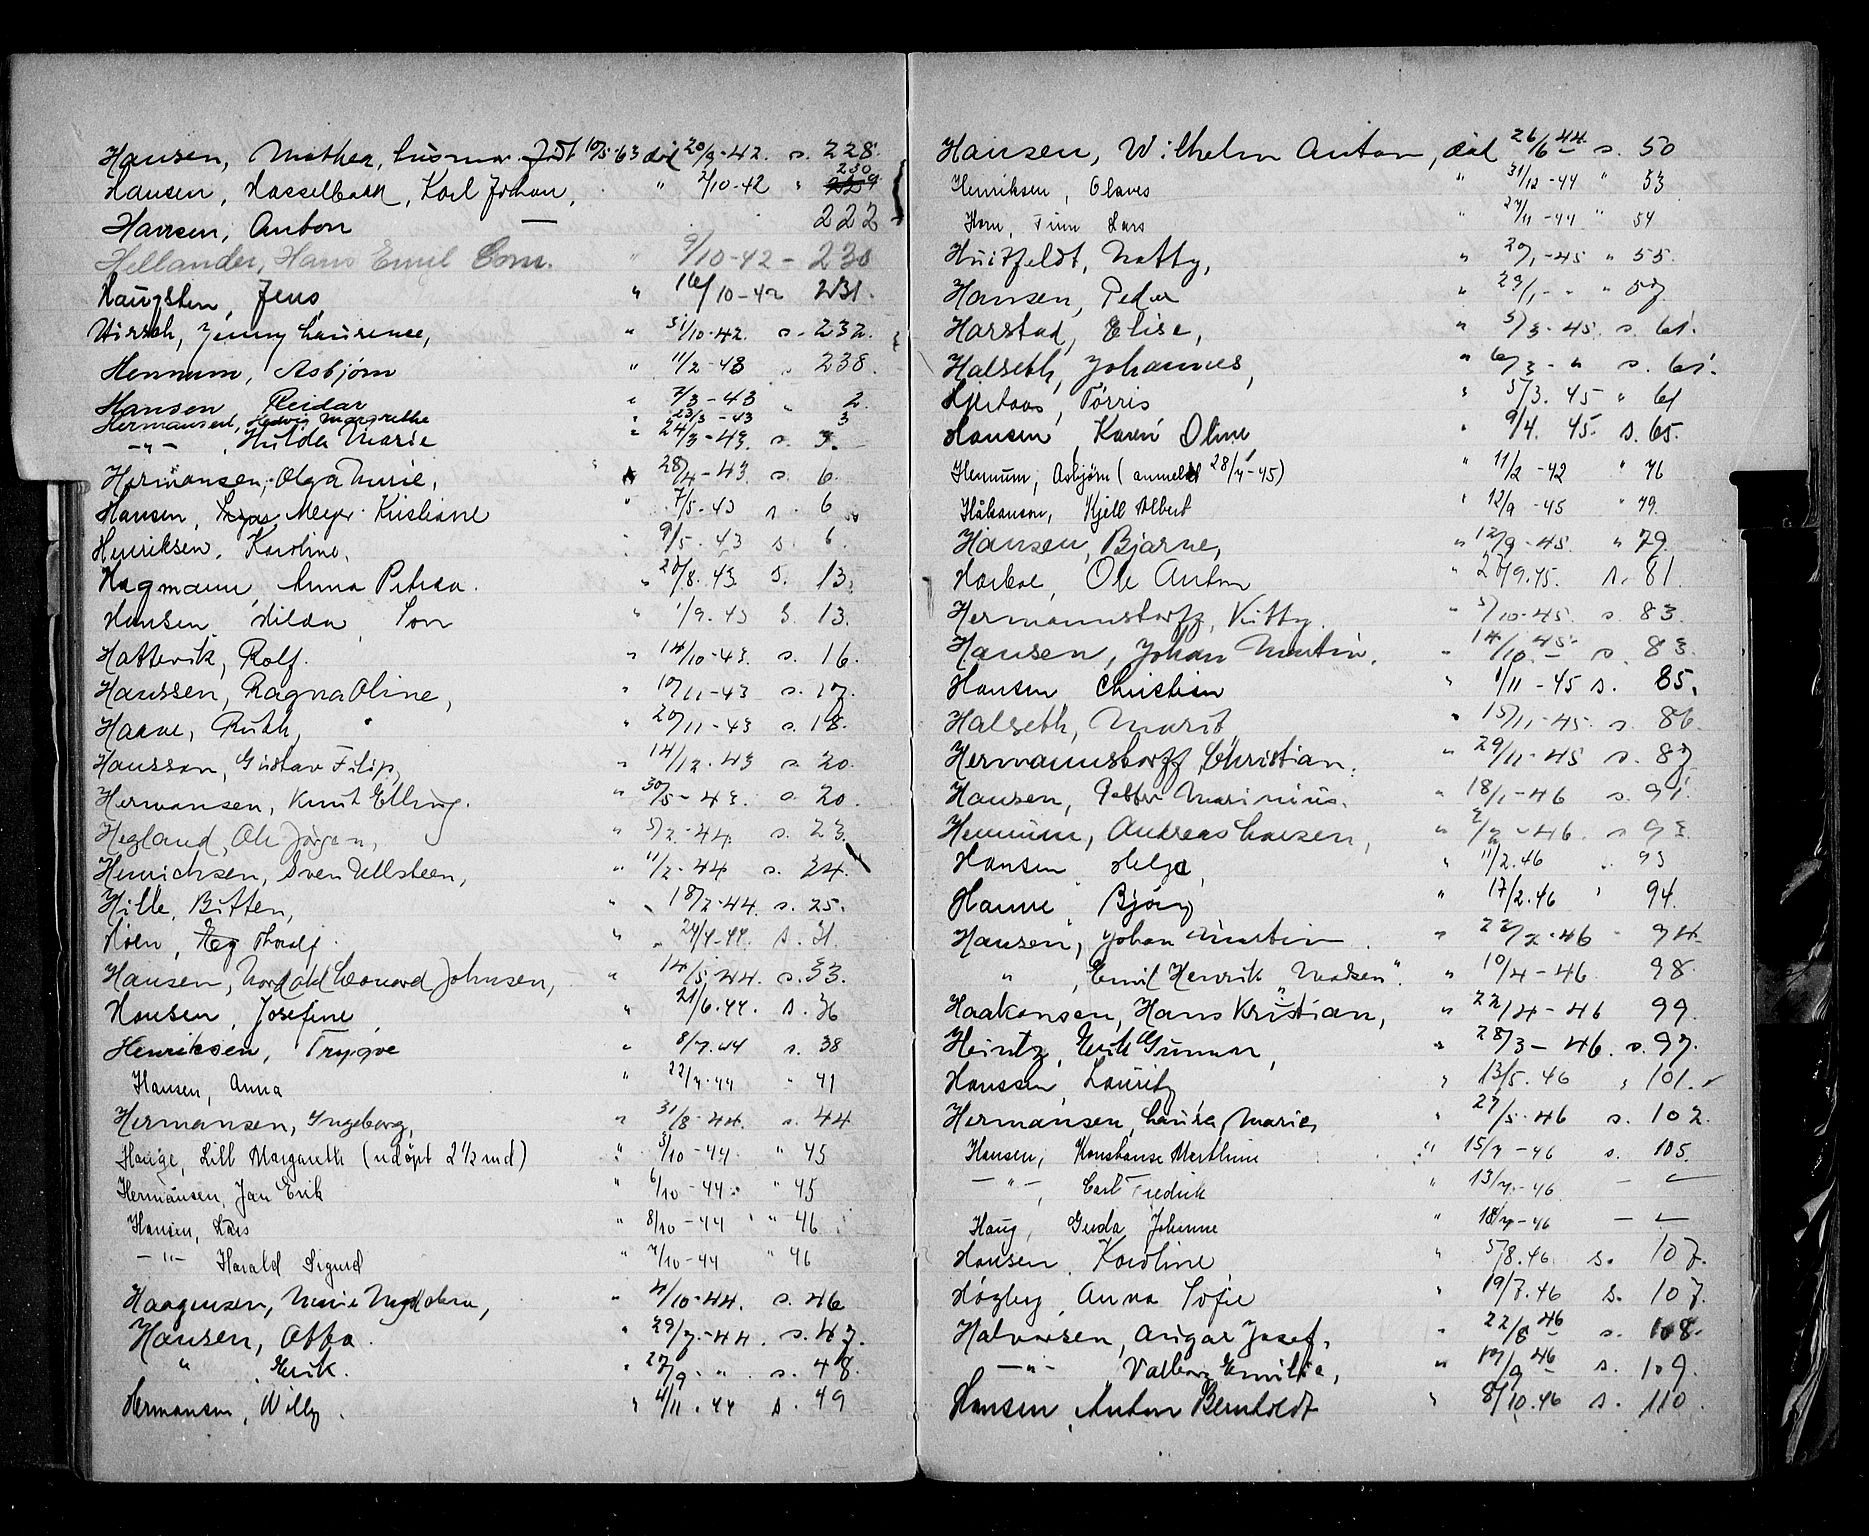 Hansen, Mathea, husmor født 10/5-63 död 20/9-42. s. 228.
Hansen, Hasselbakk, Karl Johan, " 2/10-42 " 230
Hansen, Anton — 222
Hellander, Hans Emil Corn. " 9/10-42 - 230
Haugsten, Jens, " 16/10-42 231.
Hirsch, Jenny Laurence, " 31/10-42. s. 232.
Hennum, Asbjørn " 11/2-43 238.
Hanson Reidar " 7/3-43 " 2.
Hermansen, Hedvig Margrethe " 23/3-43 3
-"- , Hulda Marie " 24/3-43. s. 3.
Hermansen, Olga Marie, 28/4-43. s. 6.
Hansen, Meyer Kristiane " 7/5-43 s. 6
Henriksen, Karoline, " 9/5-43 s. 6.
Hagmann, Anna Petrea. " 20/8.43. s. 13.
Hansen, Hilda " 1/9.43 s. 13.
Hattevik, Rolf. " 14/10-43. s. 16.
Hanssen, Ragna Oline, " 10/11-43 s. 17.
Haave, Ruth, " 20/11-43 s. 18.
Hansson, Gustav Filip, " 14/12.43 s. 20.
Hermansen, Knut Elling. " 30/5-43. s. 20.
Hegland, Ole Jørgen, " 5/2.44. s. 23.
Henrichsen, Sven Ullsteen, " 11/2.44 s. 24.
Hille, Bitten, " 18/2-44. s. 25.
Hoen, Thoralf. " 24/4-44. s. 31.
Hansen, Leonard Johnsen, " 14/5.44. s. 33.
Hansen, Josefine " 21/6.44. s. 36
Henriksen, Trygve " 8/7.44 s. 38
Hansen, Anna " 22/7-44 " 41
Hermansen, Ingeborg, " 31/8-44. s. 44
Hauge, Lill Margareth (udöpt 2 1/2 md) " 5/10-44. " 45
Hermansen, Jan Erik " 6/10-44. " 45
Hansen, Lars " 8/10-44 " 46
-"- Harald Sigurd " 7/10-44 " 46
Haagensen, Marie Magdalena, " 4/10-44. s. 46
Hansen, Otto. " 29/7-44. s. 47.
" Erik. " 27/9 - " s. 48.
Hermansen, Willy. " 4/11.44 s. 49
Hansen, Wilhelm Anton, död 26/6 44 s. 50
Henriksen, Olaves " 31/12-44 " 53
Horn, Finn Lars " 27/11-44 " 54
Huitfeldt, Natty, " 20/1-45 " 55.
Hansen, Peder " 23/1 - " " 57
Harstad, Elise, " 5/3-45. s. 61.
Halseth, Johannes, " 6/3 - " s. 61.
Tørris " 5/3.45 " 61
Hansen, Karen Oline " 9/4. 45. s. 65.
Hennum, Asbjørn (anmeldt 28/7-45) " 11/2-42 " 76
Håkanson, Kjell Albert " 12/9-45 " 79.
Hansen, Bjarne, " 12/9-45. " 79.
Ole Anton " 20/9.45. s. 81.
Hermannstorff, Kitty. " 5/10-45. s. 83.
Hansen, Johan Martin. " 14/10-45 s. 83.
Hansen Christian " 1/11-45 s. 85.
Halseth, Marit " 15/11-45. s. 86.
Hermannstorff, Christian. " 29/11-45 s. 87
Hansen, Petter Marinius. " 18/1-46 s. 91.
Hennum, Andreas Larsen, " 2/2-46. s. 93.
Hansen Helga, " 11/2.46 " 93
Hanne, Bjørg " 17/2.46 " 94.
Hansen, Johan Martin " 22/2-46 " 94.
" , Emil Henrik "Madsen". " 10/4-46 98.
Haakonsen, Hans Kristian, " 22/4-46 99.
Heintz, Erik Gunnar, " 28/3-46. s. 97.
Hanssen, Lauritz " 13/5.46 " 101.
Hermansen, Laura Marie, " 27/5-46 s. 102.
Hansen, Konstanse Marthine " 15/7-46 s. 105.
-"-, Carl Fredrik " 13/7-46 —
Haug, Gerda Johanne " 18/7-46 —
Hansen, Karoline " 5/8.46. s. 107.
Høgby, Anna Sofie " 19/7.46 s. 107.
Halvorsen, Ansgar Josef, " 22/8 46 s. 108.
-"- Valborg Emilie, " 10/9 46 s. 109.
Hansen, Anton Bernholdt " 8/10.46 s. 110.